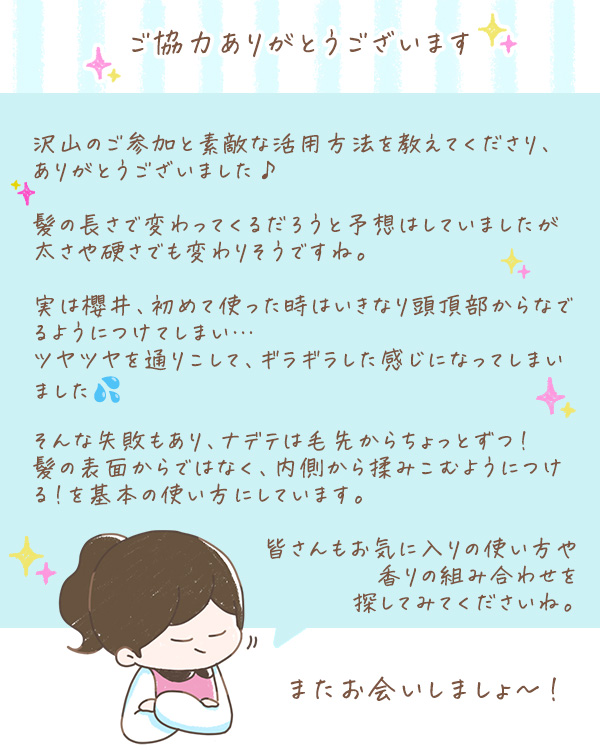 ご協力ありがとうございます
沢山のご参加と素敵な活用方法を教えてくださり、
ありがとうございました♪
髪の長さで変わってくるだろうと予想はしていましたが
太さや硬さでも変わりそうですね。
実は櫻井、初めて使った時はいきなり頭頂部からなで
るようにつけてしまい…
ツヤツヤを通りこして、ギラギラした感じになってしまい
ました💦
そんな失敗もあり、ナデテは毛先からちょっとずつ！
髪の表面からではなく、内側から揉みこむようにつけ
る！を基本の使い方にしています。
皆さんもお気に入りの使い方や
香りの組み合わせを
探してみてくださいね。
またお会いしましょ〜！